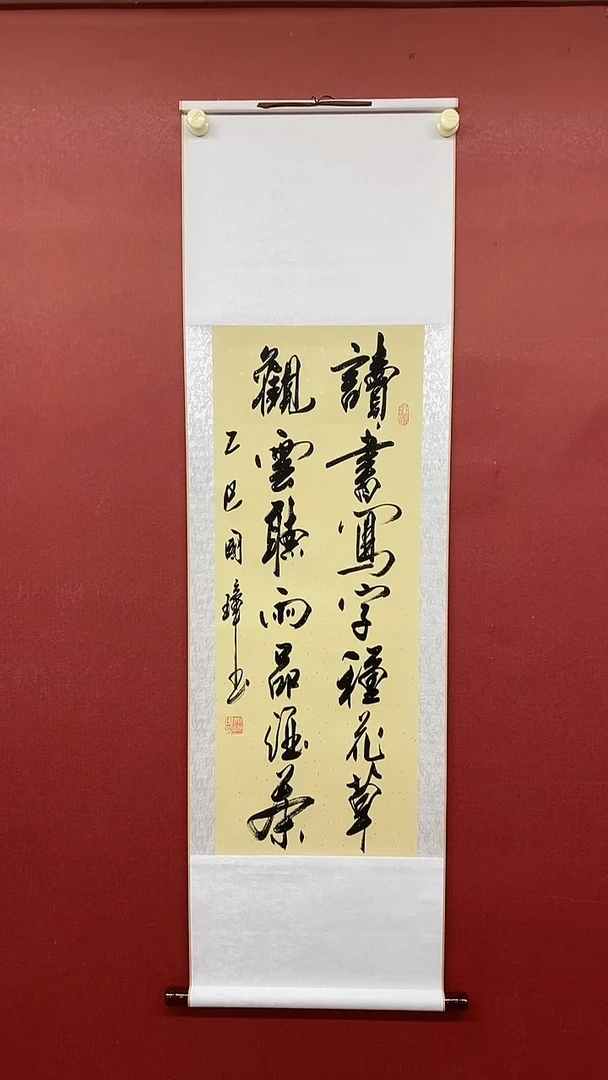 讀書寫字種花草
觀雲聽雨品酒茶
乙巳國璋书